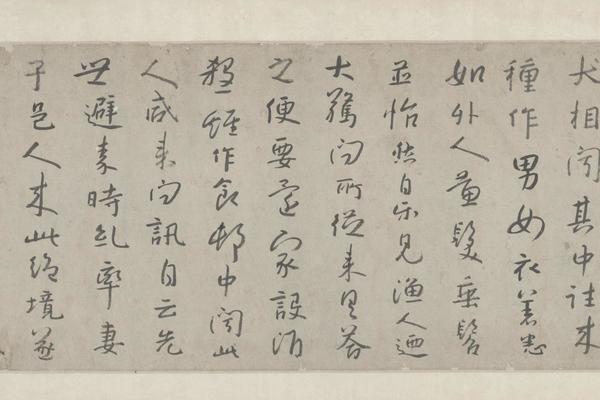 犬相聞其中往来
種作男女衣著悉
如外人黃髮垂髫
並怡然自樂見漁人迺
大驚問所從来具答
之便要還家設酒
殺雞作食邨中聞此
人咸来問訊自云先
世避秦時乱率妻
子邑人来此絶境遂